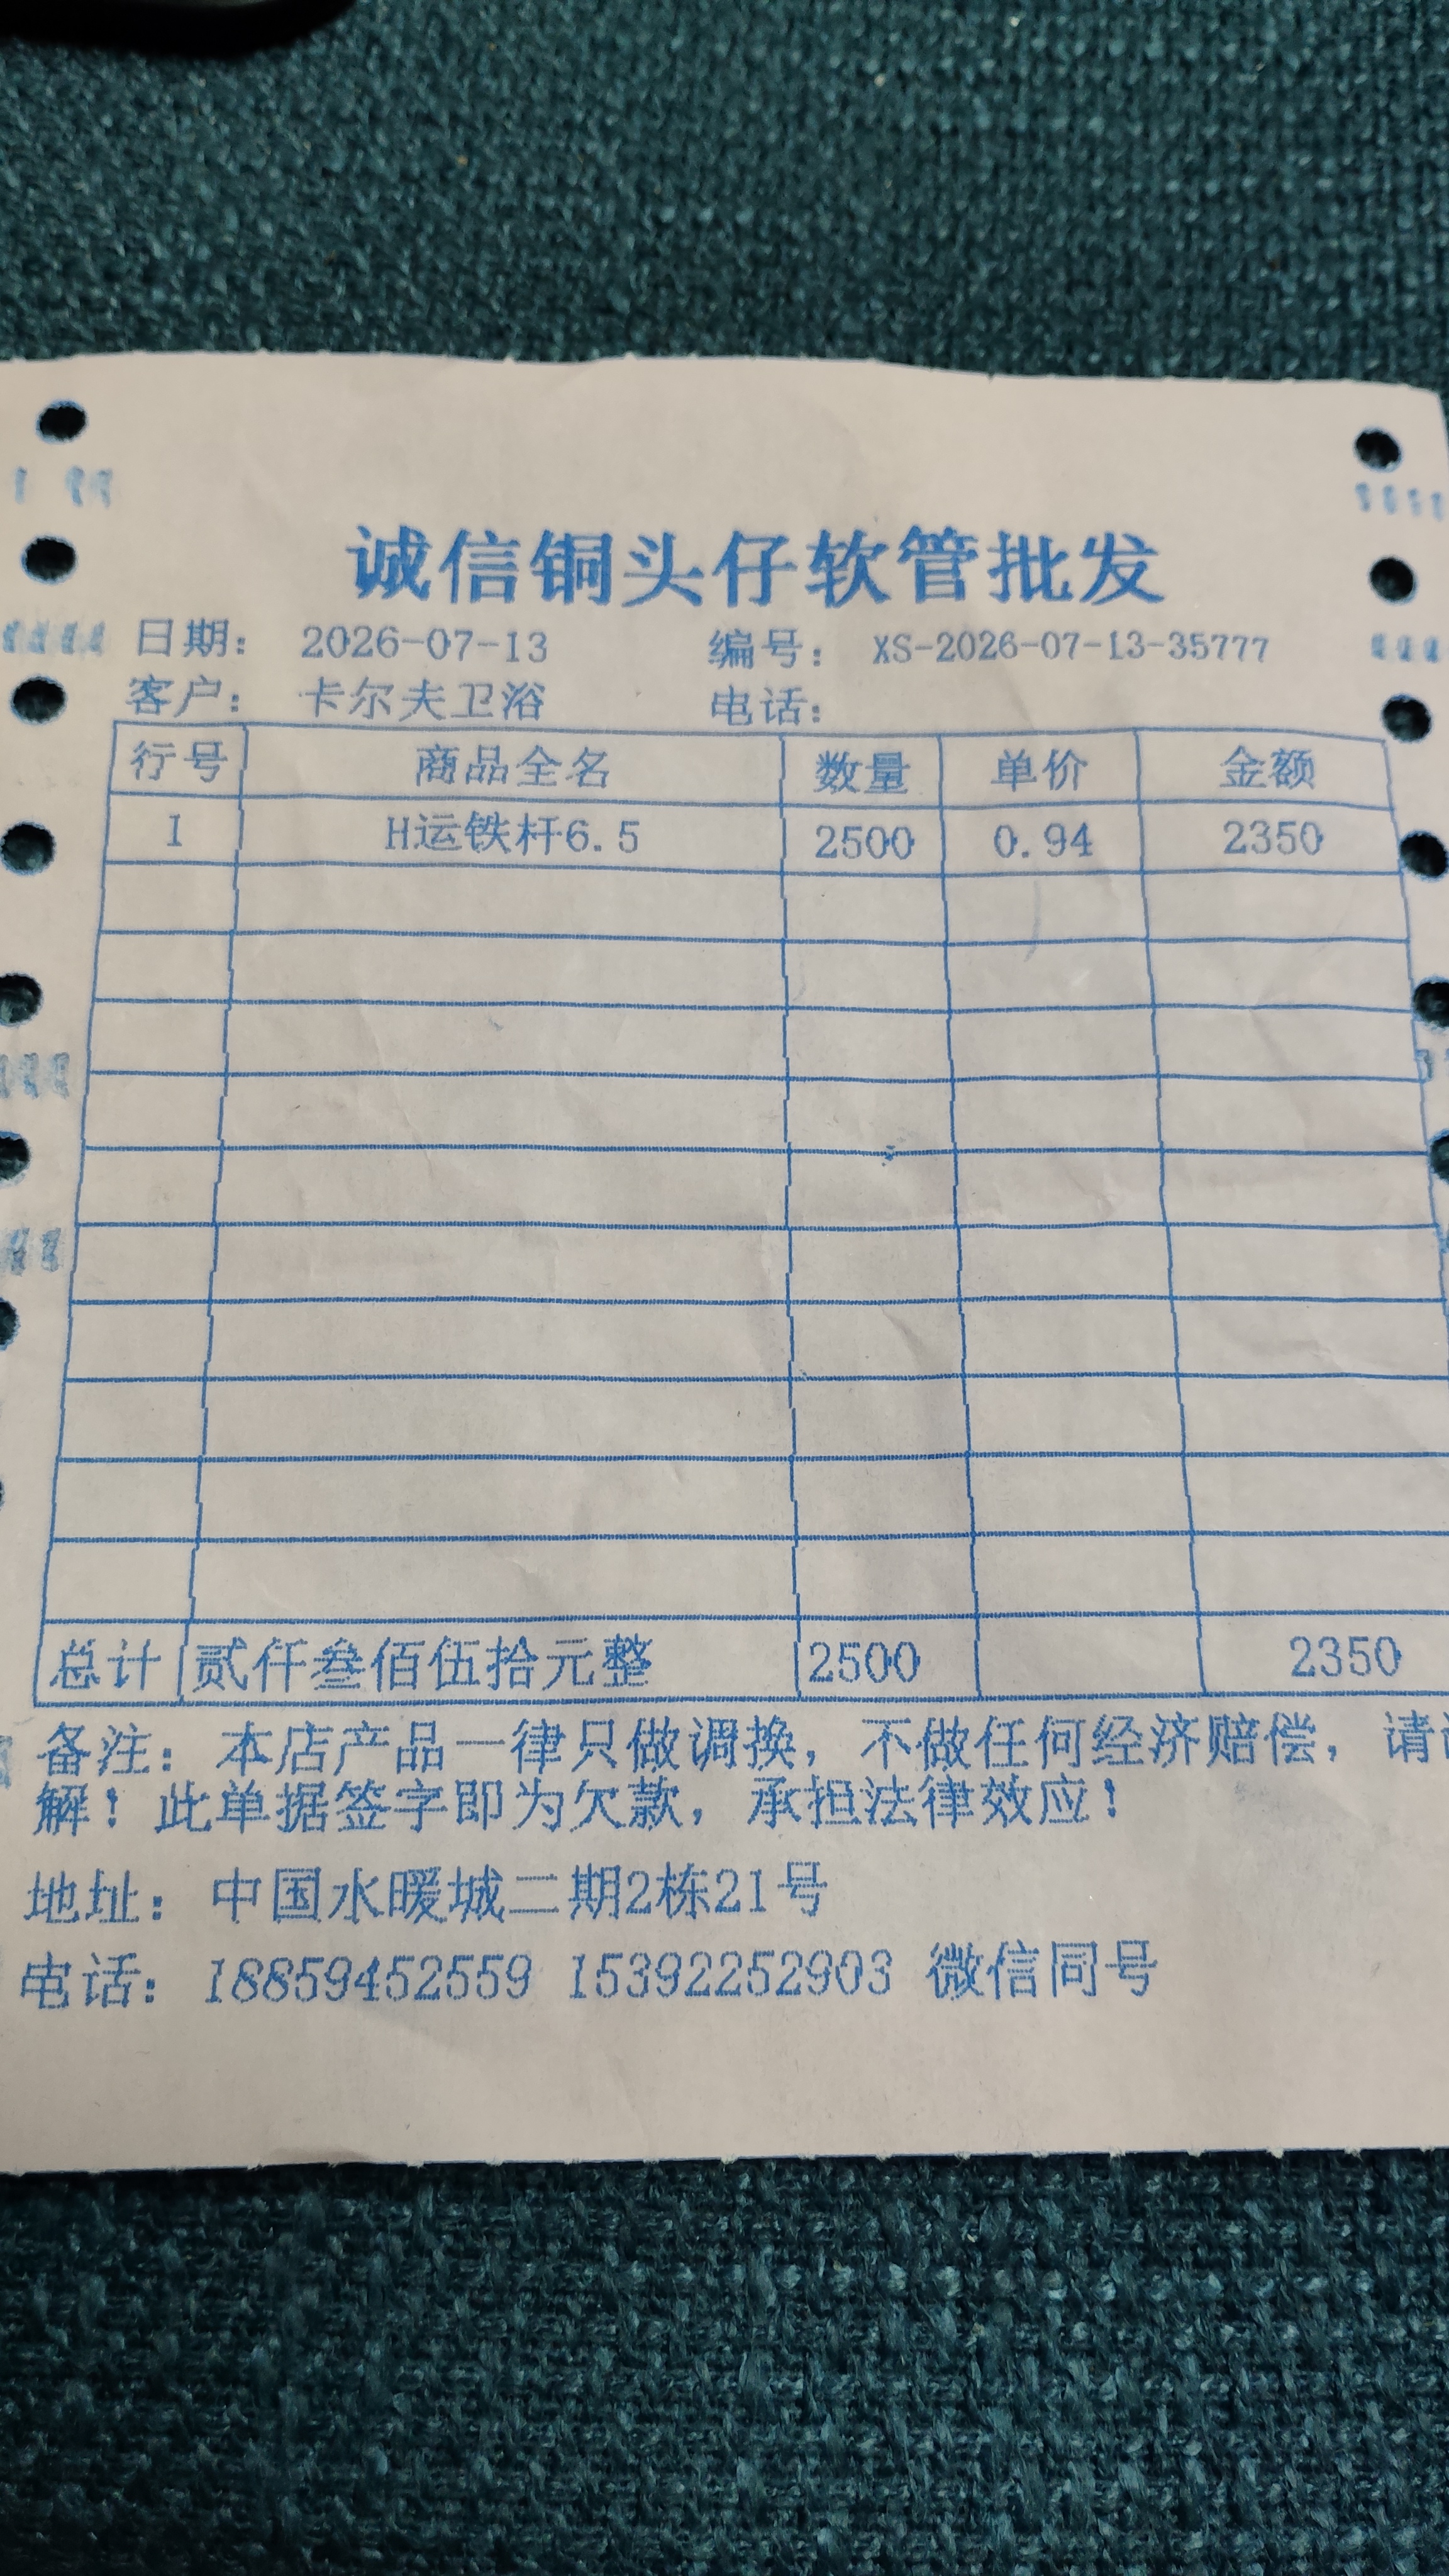 诚信铜头仔软管批发
日期： 2026-07-13 编号： XS-2026-07-13-35777
客户： 卡尔夫卫浴 电话：
行号 商品全名 数量 单价 金额
1 H运铁杆6.5 2500 0.94 2350
总计 贰仟叁佰伍拾元整 2500 2350
备注：本店产品一律只做调换，不做任何经济赔偿，请
解！此单据签字即为欠款，承担法律效应！
地址：中国水暖城二期2栋21号
电话：18859452559 15392252903 微信同号